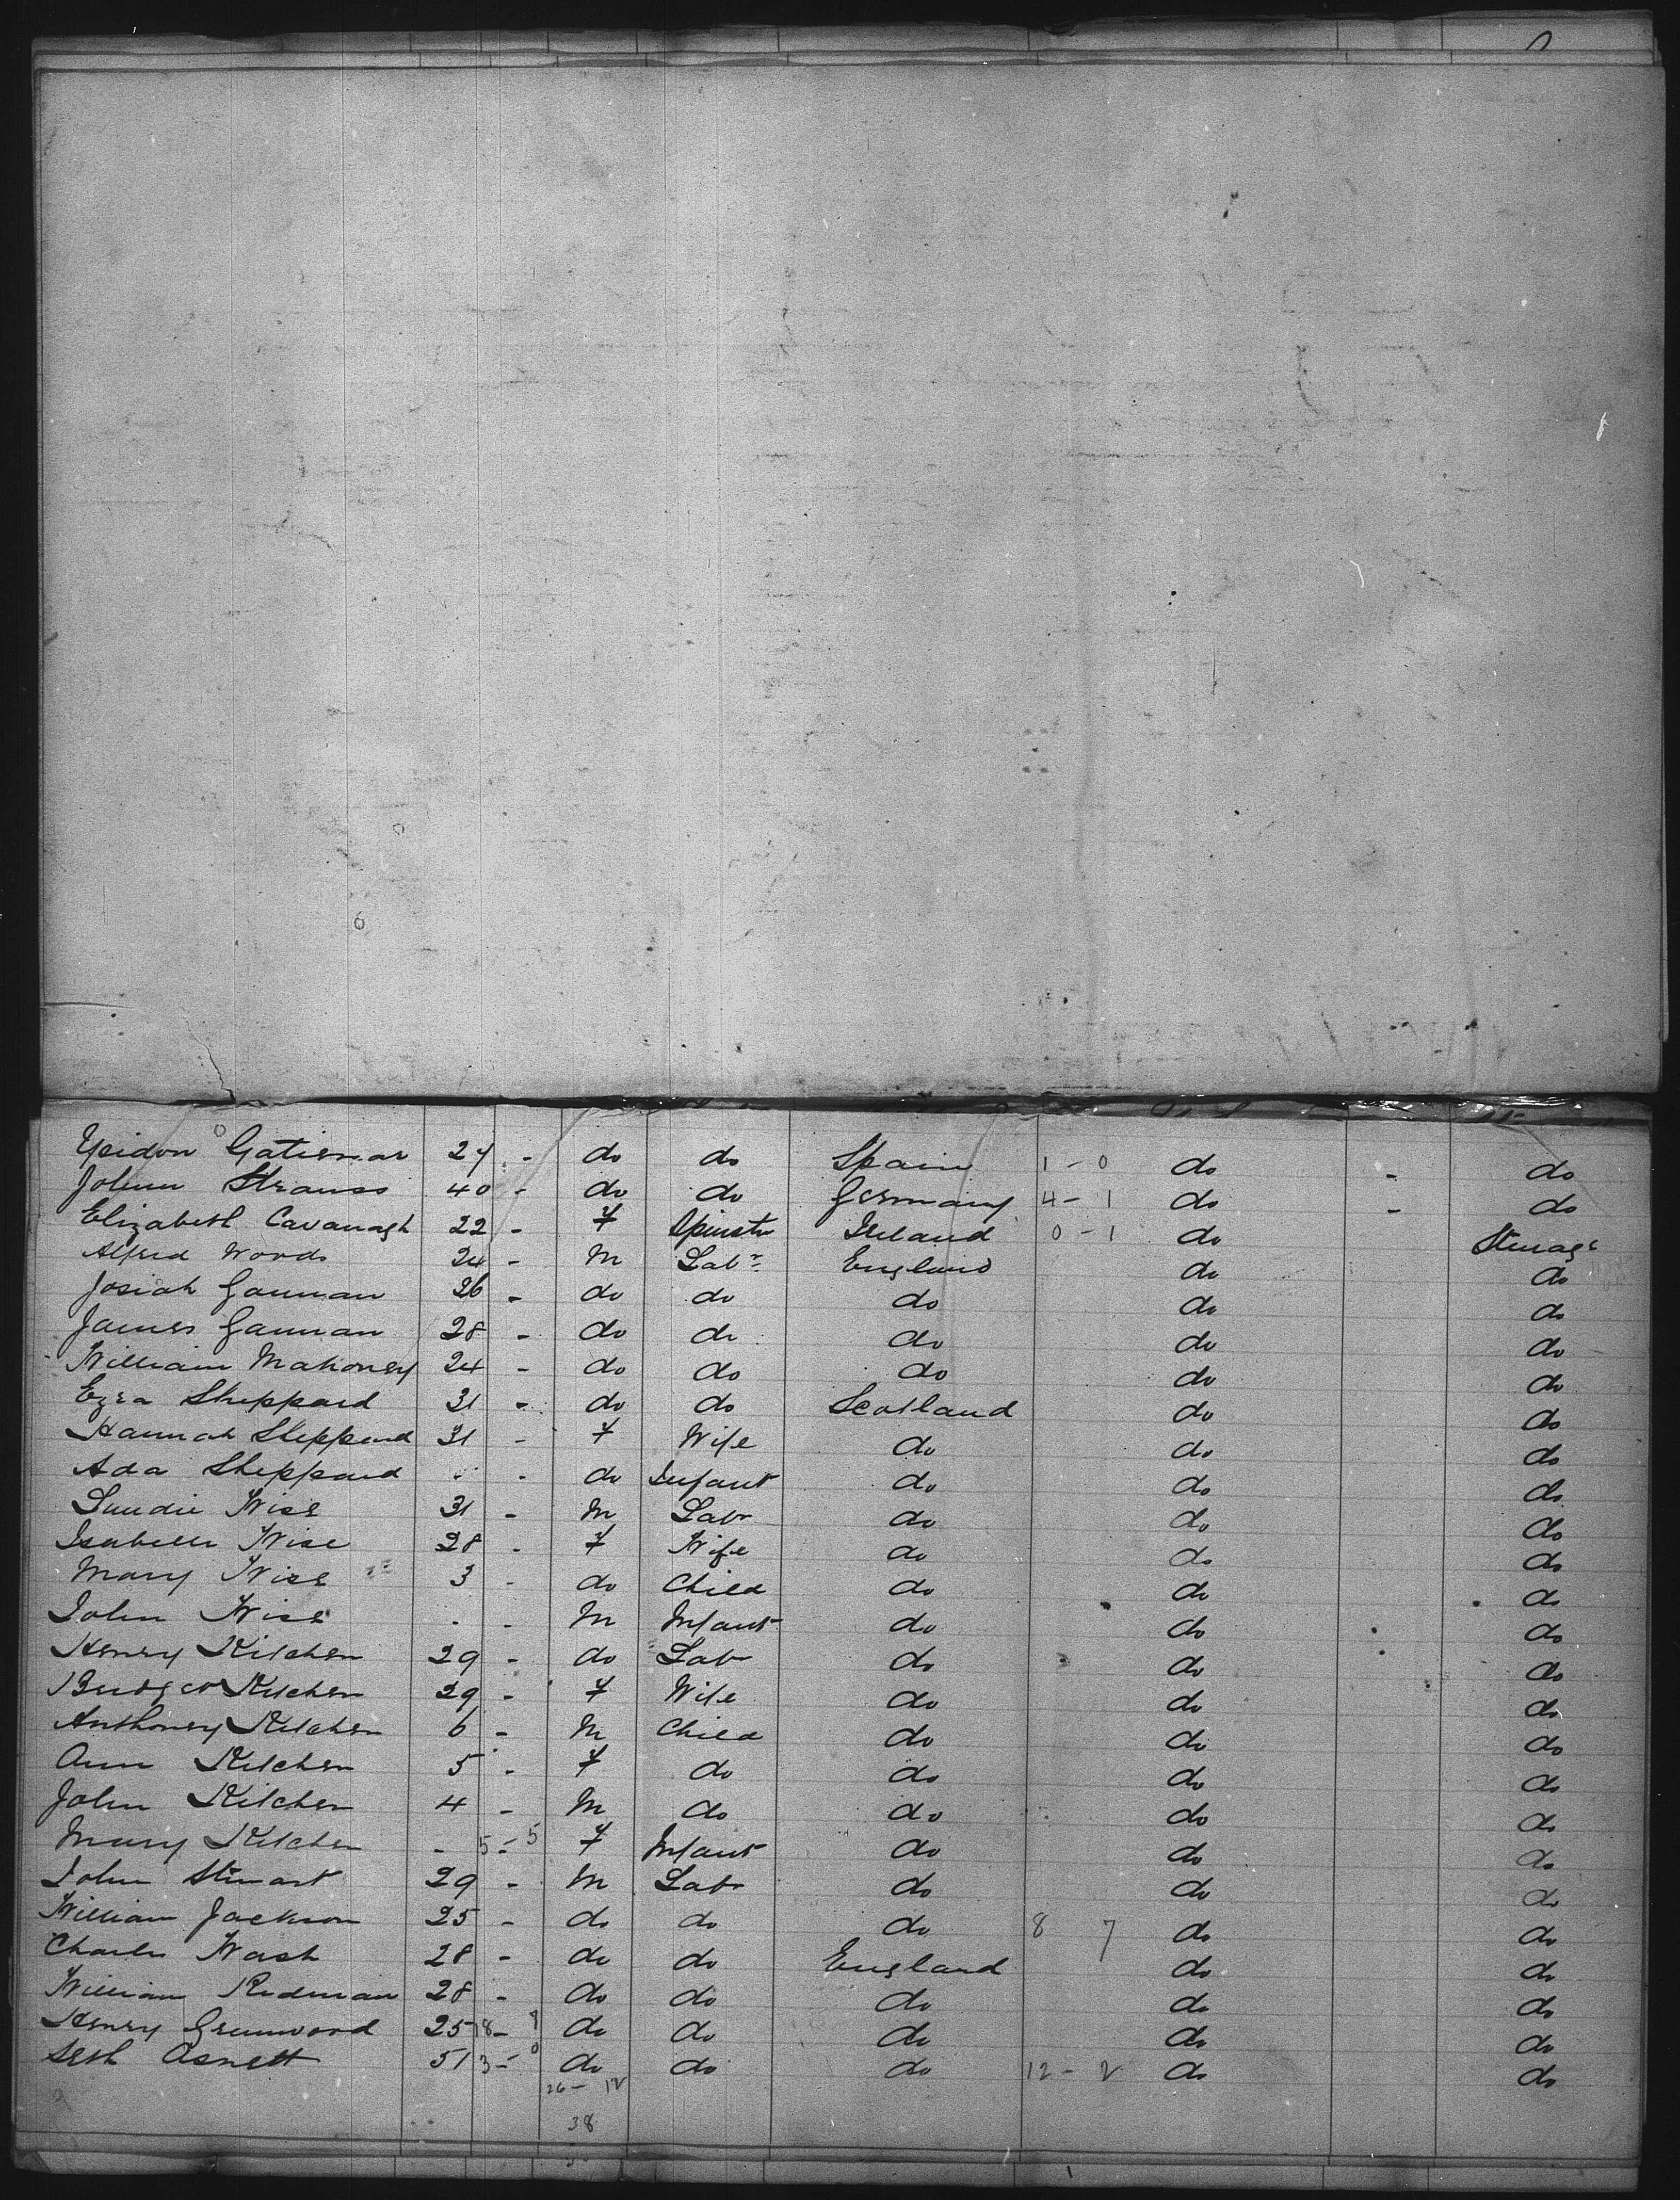 Ysidon Gatismar 24 - do do Spain 1 - 0 do - do
Johann Strauss 40 - do do Germany 4 - 1 do - do
Elizabeth Cavanagh 22 - F Spinstr Ireland 0 - 1 do Steerage
Alfred Woods 24 - M Labr England do do
Josiah Gauman 26 - do do do do do
James Gauman 28 - do do do do do
William Mahoney 24 - do do do do do
Ezra Sheppard 31 - do do Scotland do do
Hannah Sheppard 31 - F Wife do do do
Ada Sheppard - - do Infant do do do
Wise 31 - M Labr do do do
Isabella Wise 28 - F Wife do do do
Mary Wise 3 - do Child do do do
John Wise - - M Infant do do do
Henry Kitchen 29 - do Labr do do do
Bridget Kitchen 29 - F Wife do do do
Anthoney Kitchen 6 - M Child do do do
Ann Kitchen 5 - F do do do do
John Kitchen 4 - M do do do do
Mary Kitchen - 5 - 5 F Infant do do do
John Stuart 29 - M Labr do do do
William Jackson 25 - do do do 8 7 do do
Charles Wash 28 - do do England do do
William Redman 28 - do do do do do
Henry Greenwood 25 18 - 9 do do do do do
Seth Asnett 51 3 - 0 do do do 12 - 2 do do
26 - 12
38